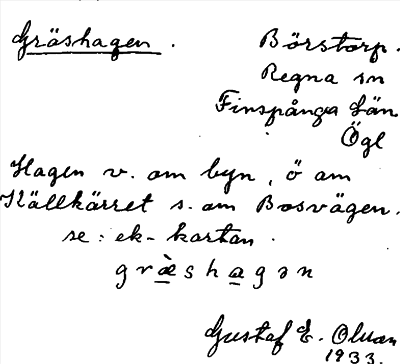 Gräshagen. Börstorp.
Regna sn
Finspånga län
Ögl
Hagen v. om byn, ö om
Källkärret s. om Bosvägen.
se: ek-kartan.
gràeshagən
Gustaf E. Olsson
1933.